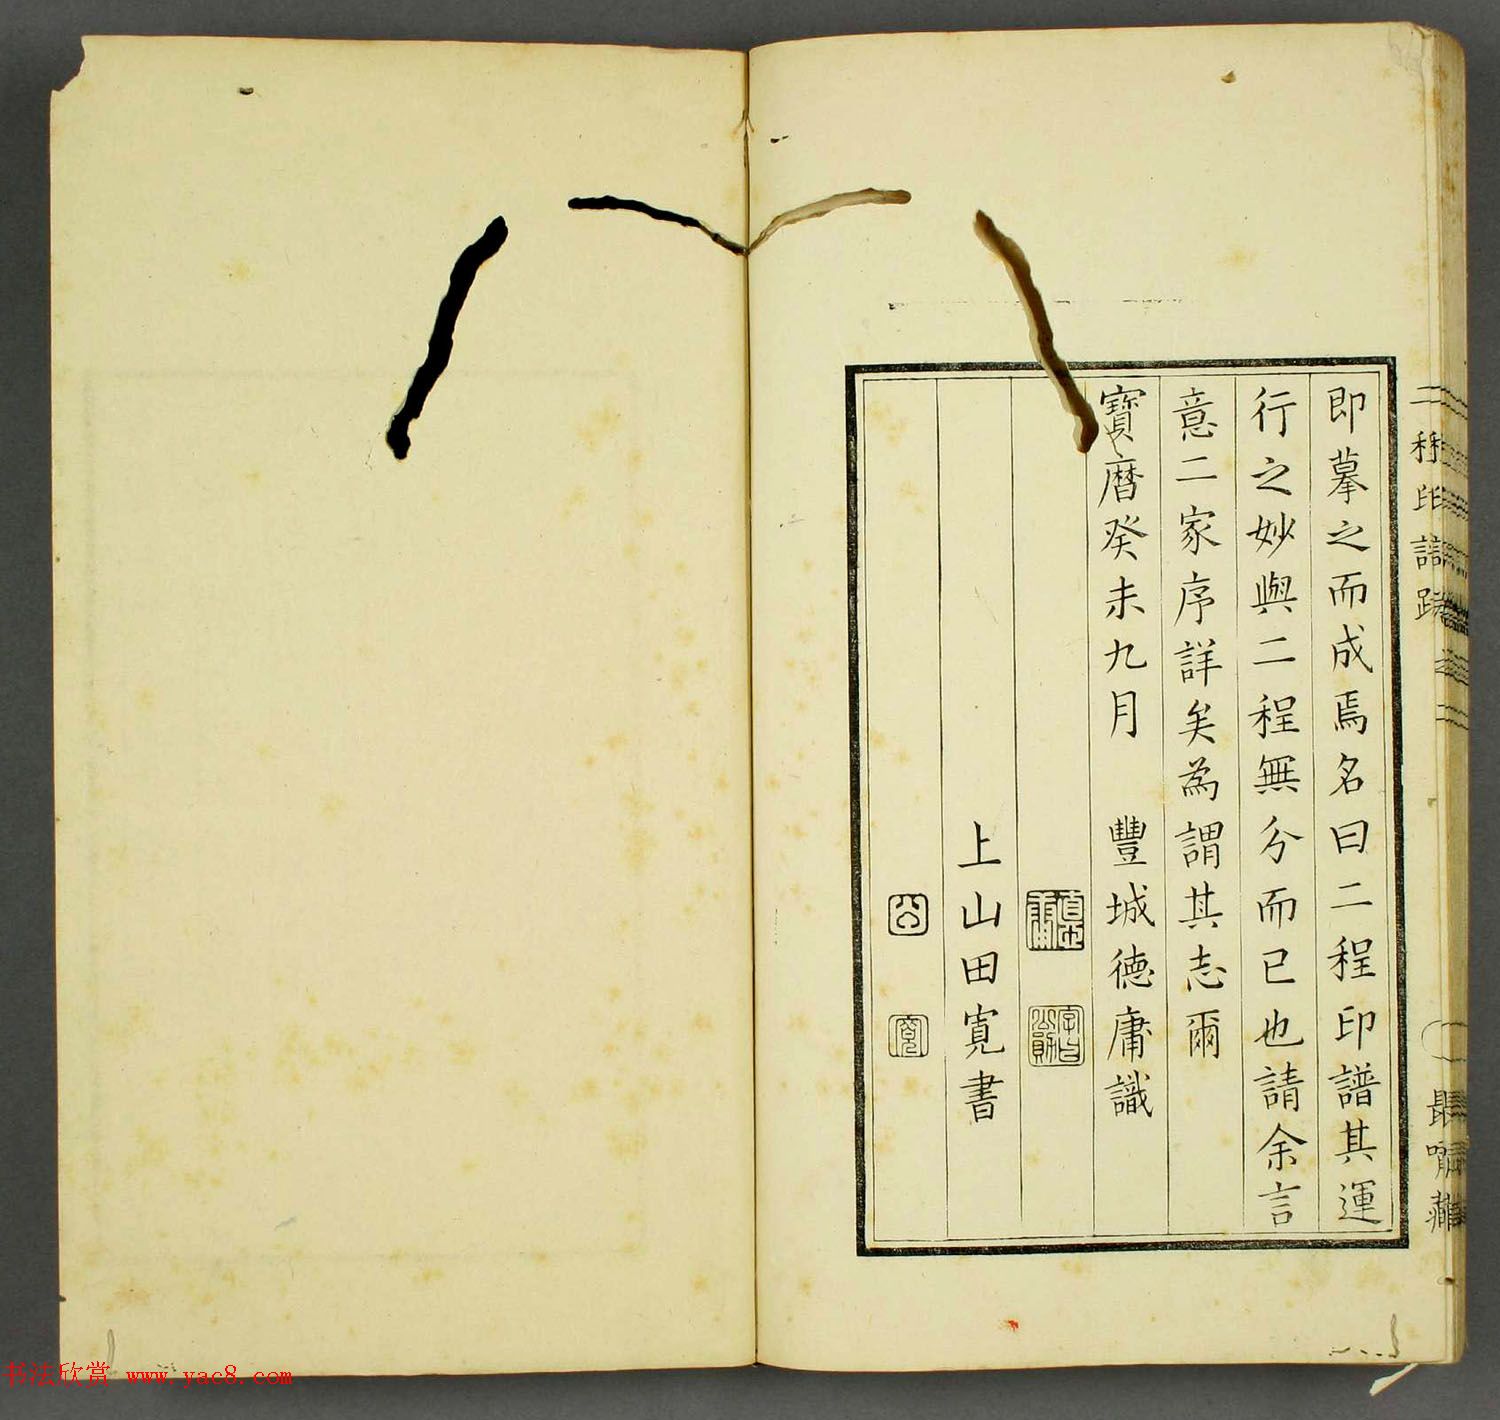 即摹之而成焉名曰二程印譜其運
行之妙與二程無分而已也請余言
意二家序詳矣為謂其志爾
寶曆癸未九月　豐城德庸識
上山田寛書
公
寛
二程印譜跋
二
書法欣赏 www.yac8.com